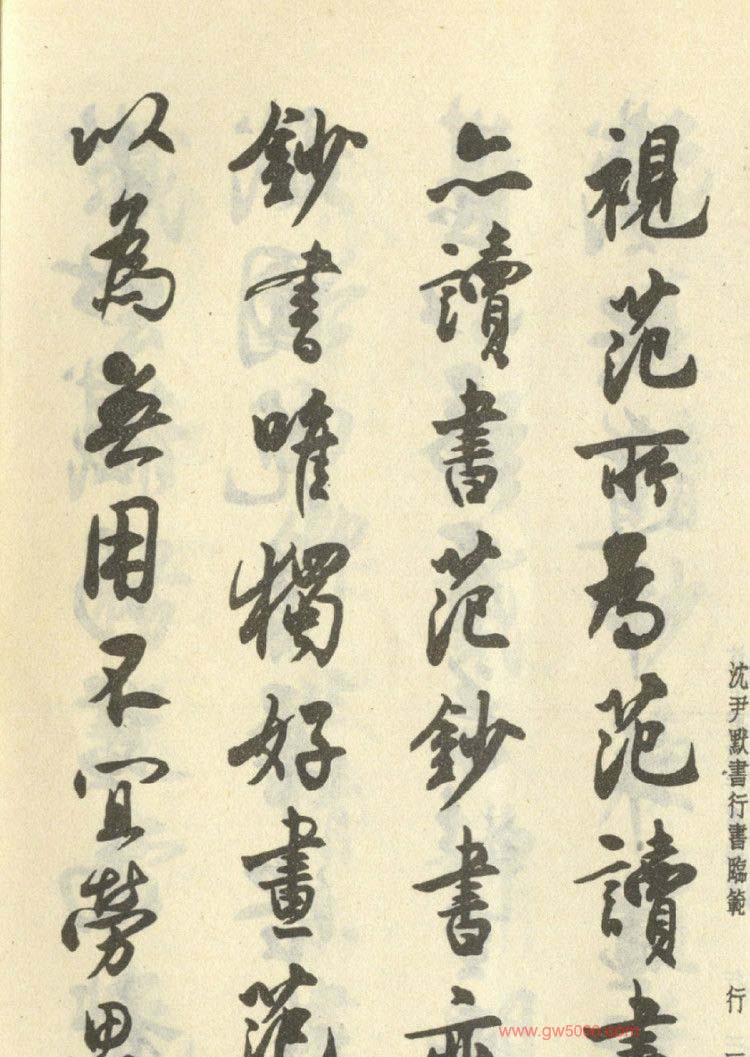 視范所為范讀書
亦讀書范鈔書亦
鈔書唯獨好畫范
以為無用不宜勞思
沈尹默書行書臨範
行二
www.gw5000.com